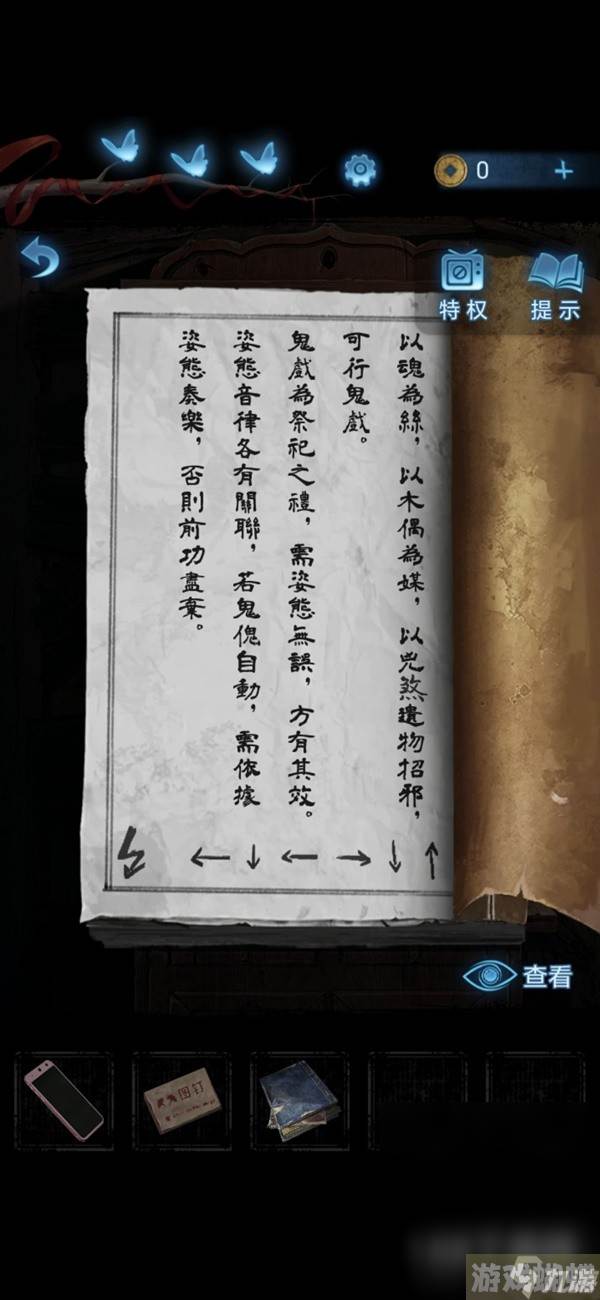 0
特权
提示
以魂為絲，以木偶為媒，以兇煞遺物招邪，
可行鬼戲。
鬼戲為祭祀之禮，需姿態無誤，方有其效。
姿態音律各有關聯，若鬼傀自動，需依據
姿態奏樂，否則前功盡棄。
↑↓→←↓←
查看
图钉
游戏